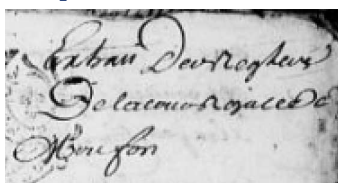 Extrait Des Registres
De la Cour Royalle de